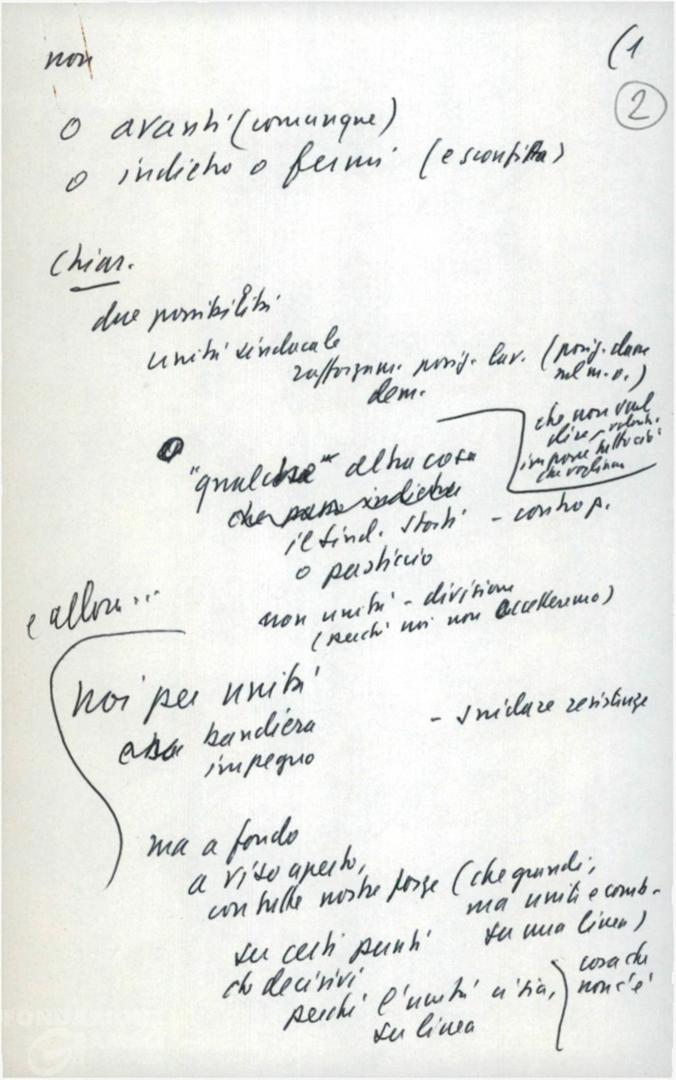 non
(1
2
o avanti (comunque)
o indietro o fermi (e sconfitta)
Chiar.
due possibilità
unità sindacale
rafforzam. posiz. lav. (posiz. classe
dem. nel m.o.)
che non vuol
dire
imporre tutto ciò
che vogliamo
o
"qualche" altra cosa
che passo indietro
il sind. - contro p.
o pasticcio
e allora...
non unità - divisione
(perché noi non accetteremo)
noi per unità
bandiera
impegno
- snidare resistenze
ma a fondo
a viso aperto,
con tutte nostre forze (che grandi,
ma uniti e comb.
su una linea)
su certi punti
che decisivi
perché l'unità ci sia,
su linea
cosa che
non c'è
FONDAZIONE